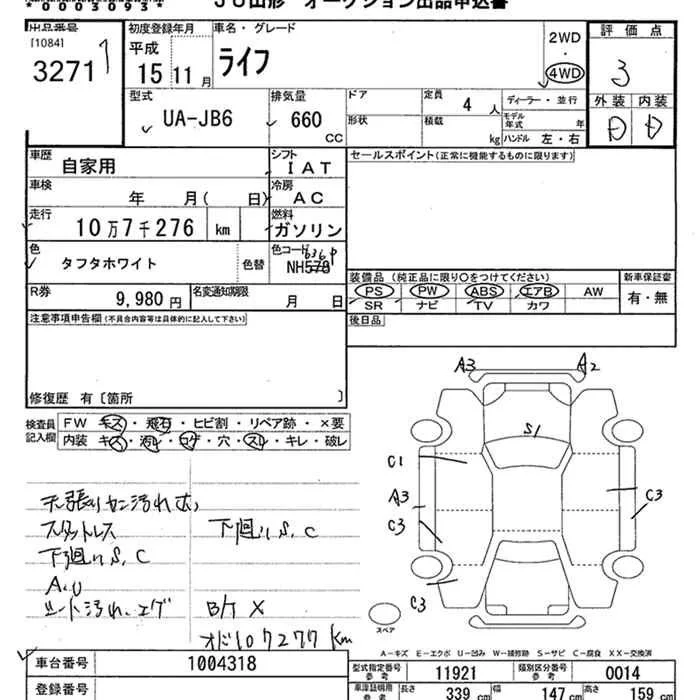 *00003093* ＪＵ山形 オークション出品申込書
出品番号 初度登録年月 車名・グレード 評価点
[1084] 平成 ライフ 2WD
3271 15 11月 4WD 3
型式 排気量 ドア 定員 4人 ディーラー・並行 外装 内装
UA-JB6 660 CC 形状 積載 kg モデル年式 年 D D
ハンドル 左・右
車歴 自家用 シフト IAT セールスポイント(正常に機能するものに限ります)
車検 年 月( 日) 冷房 AC
走行 10万7千276 km 燃料 ガソリン
色 タフタホワイト 色替 色コード NH578 636P
装備品 (純正品に限り○をつけてください) 新車保証書
R券 9,980円 名変通知期限 月 日 PS PW ABS エアB AW 有・無
SR ナビ TV カワ
注意事項申告欄(不具合内容等は具体的に記入して下さい) 後日品
修復歴 有〔箇所 〕
A3 A2
検査員記入欄 FW キズ・飛石・ヒビ割・リペア跡・×要
内装 キズ・汚れ・コゲ・穴・スレ・キレ・破レ
S1
C1
A3
C3
C3
C3
天張りカン汚れ大
スタットレス 下廻りS.C
下廻りS.C
A.U
シート汚れ、エグ B/T X
オド107277km
スペア
A－キズ E－エクボ U－凹み W－補修跡 S－サビ C－腐食 XX－交換済
車台番号 1004318 型式指定番号 参考 11921 類別区分番号 参考 0014
登録番号 車庫証明用 参考 長さ 339 cm 幅 147 cm 高さ 159 cm